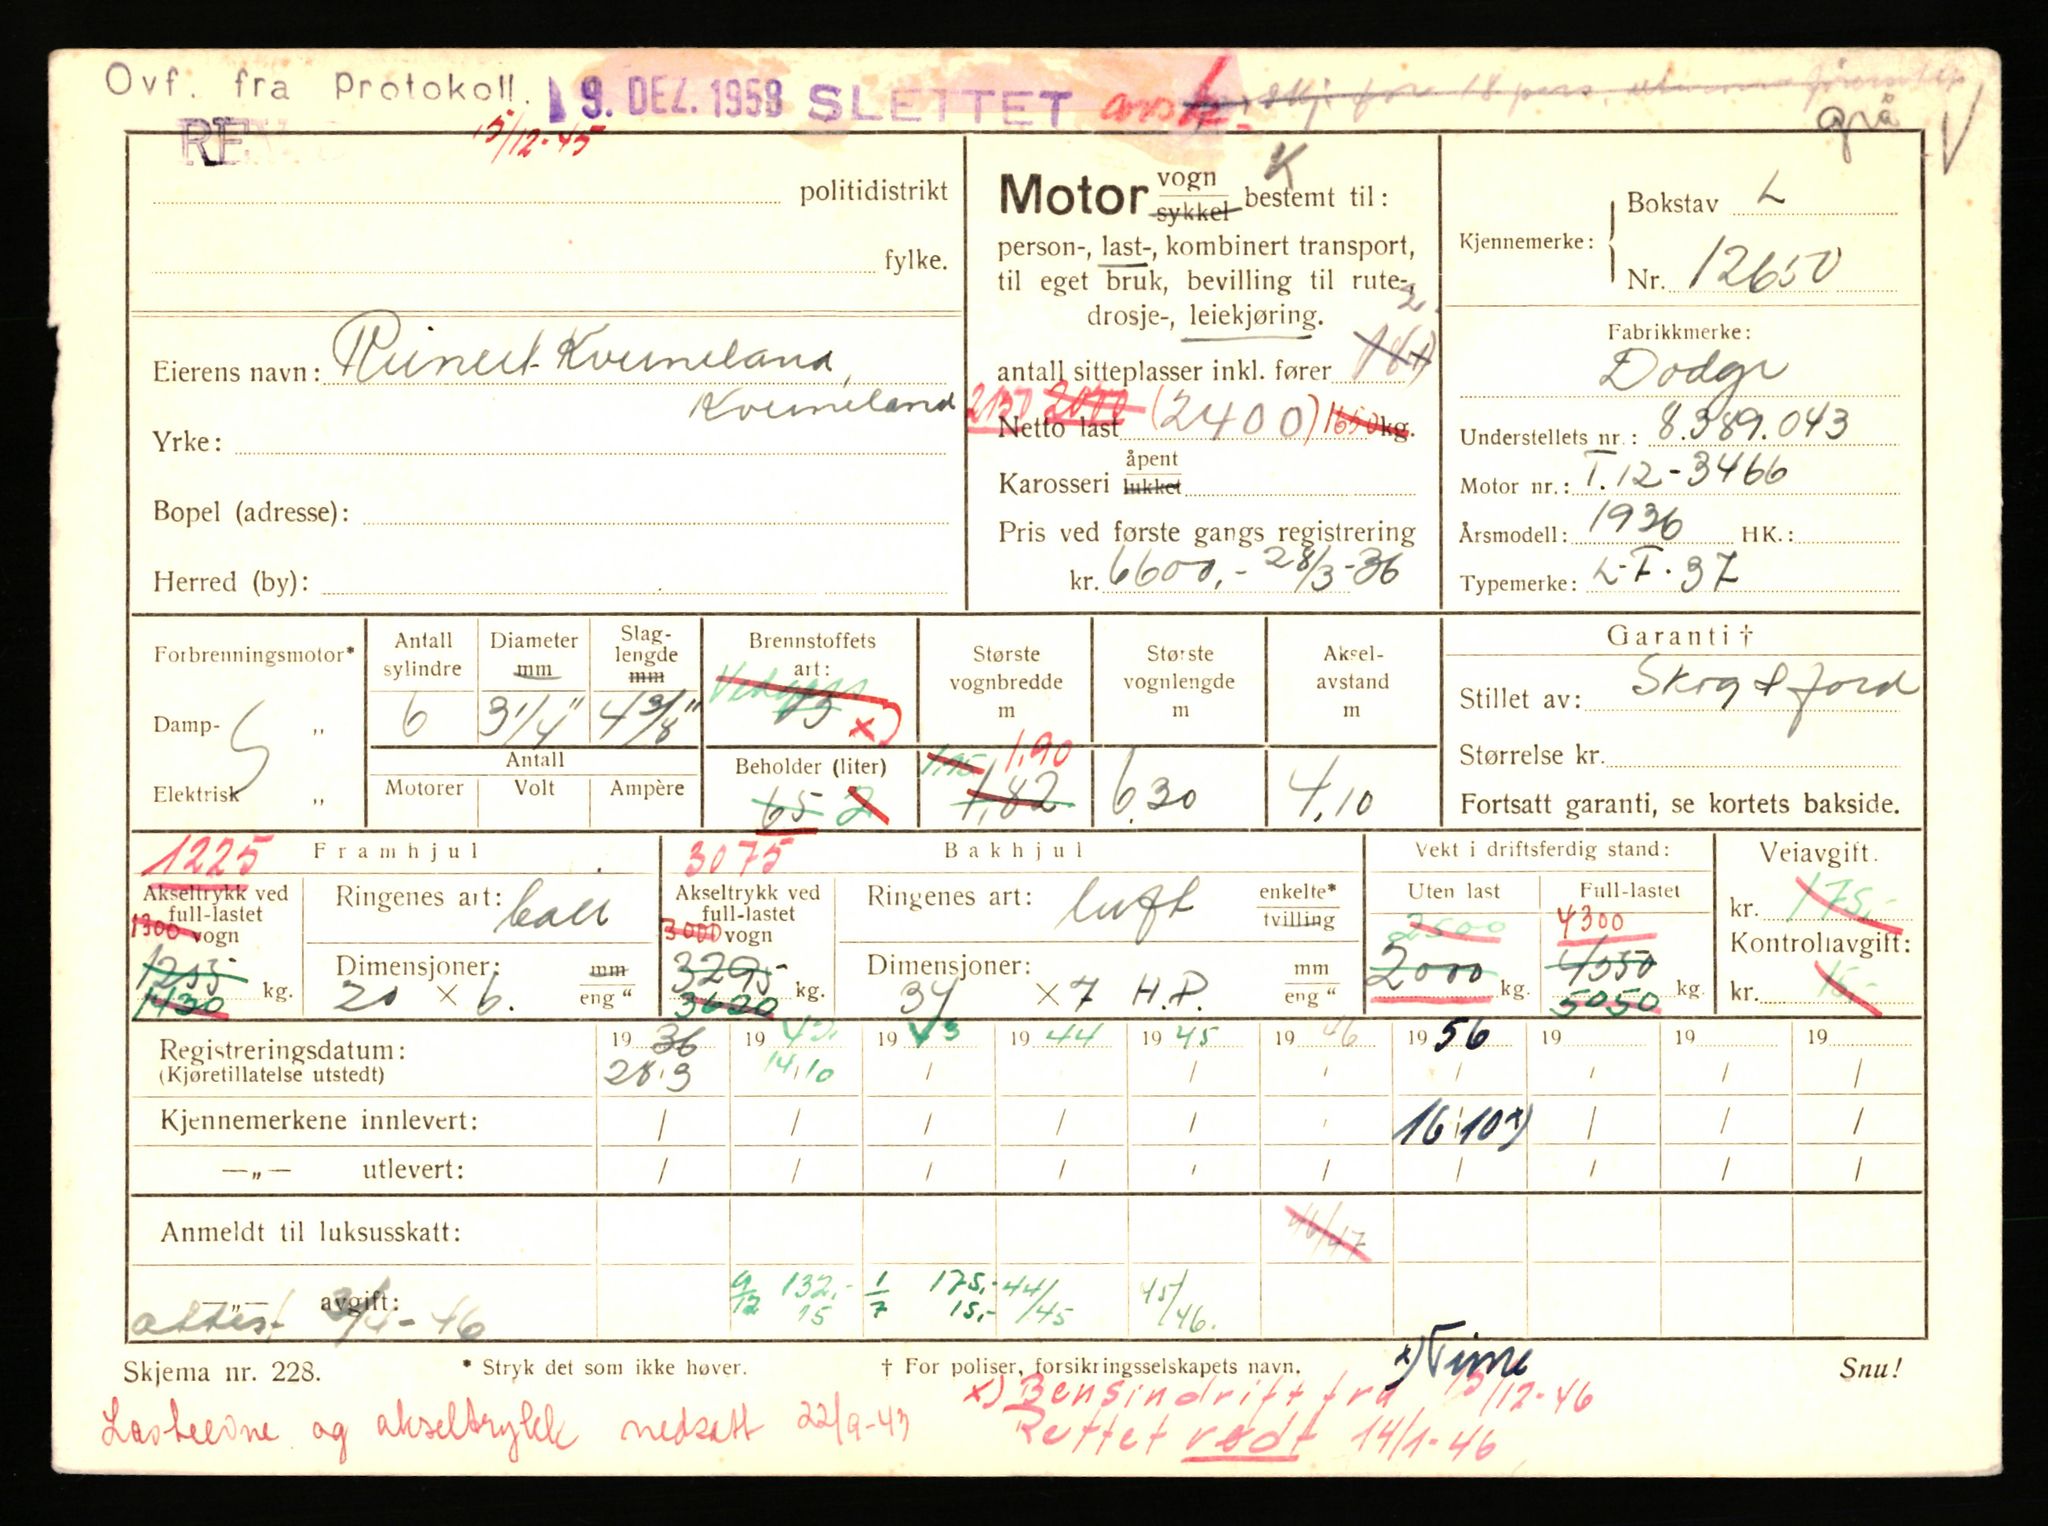 Ovf. fra Protokoll. 19. DEZ. 1958 SLETTET
15/12-45
grå
politidistrikt
fylke.
Eierens navn: Reinert Kverneland,
Kverneland
Yrke:
Bopel (adresse):
Herred (by):
Motor vogn / sykkel bestemt til:
person-, last-, kombinert transport,
til eget bruk, bevilling til rute-,
drosje-, leiekjøring.
2
antall sitteplasser inkl. fører 18
2150 2000 (2400) 1650 kg.
Netto last
Karosseri åpent / lukket
Pris ved første gangs registrering
kr. 6600,- 28/3-36
Kjennemerke: Bokstav L
Nr. 12650
Fabrikkmerke:
Dodge
Understellets nr.: 8.389.043
Motor nr.: T.12-3466
Årsmodell: 1936 HK.:
Typemerke: L.F.37
Forbrenningsmotor*
Damp- „
Elektrisk „
Antall sylindre 6
Diameter mm 3 1/4"
Slaglengde mm 4 3/8"
Antall
Motorer Volt Ampère
Brennstoffets art: Vedgass B x)
Beholder (liter) 65 2
Største vognbredde m 1,95 1,90 1,82
Største vognlengde m 6,30
Akselavstand m 4,10
Garanti †
Stillet av: Skogfjord
Størrelse kr.
Fortsatt garanti, se kortets bakside.
1225 Framhjul
Akseltrykk ved full-lastet vogn 1300 1255 1430 kg.
Ringenes art: ball
Dimensjoner: 20 × 6. mm / eng "
3075 Bakhjul
Akseltrykk ved full-lastet vogn 3000 3295 3620 kg.
Ringenes art: luft enkelte* / tvilling
Dimensjoner: 34 × 7 H.P. mm / eng "
Vekt i driftsferdig stand:
Uten last 2500 2000 kg.
Full-lastet 4300 4550 5050 kg.
Veiavgift.
kr. 175,-
Kontrollavgift:
kr. 15,-
Registreringsdatum: 19 36 19 42 19 43 19 44 19 45 19 46 19 56 19 19 19
(Kjøretillatelse utstedt) 28/3 14/10
Kjennemerkene innlevert: 16/10 x)
—„— utlevert:
Anmeldt til luksusskatt: 46/47
—„— avgift: 9/12 132,- 15 1/7 175,- 15,- 44/45 45/46.
attest 3/4-46
Skjema nr. 228. * Stryk det som ikke høver. † For poliser, forsikringsselskapets navn. x) Time Snu!
x) Bensindrift fra 15/12-46
Lasteevne og akseltrykk nedsatt 22/9-43
Rettet rødt 14/1-46